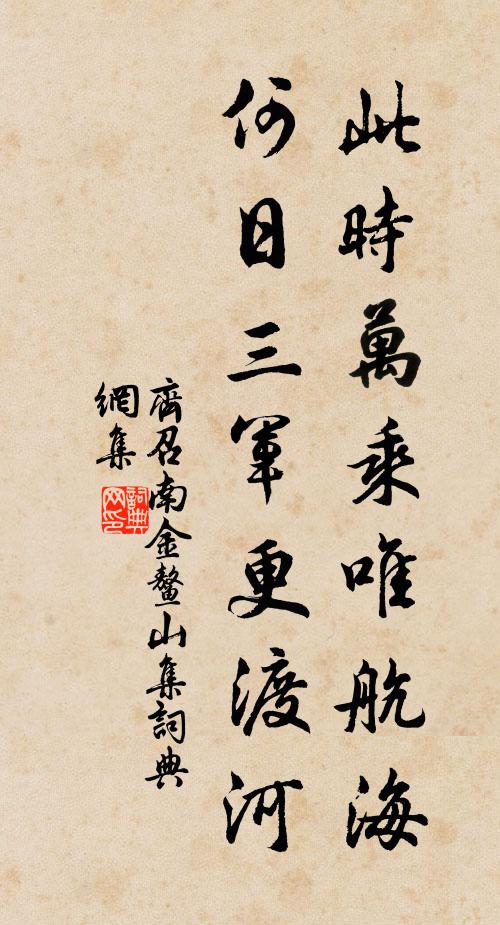 此時萬乘唯航海
何日三軍更渡河
齊召南金鰲山集詞典
網集
詞典
网印